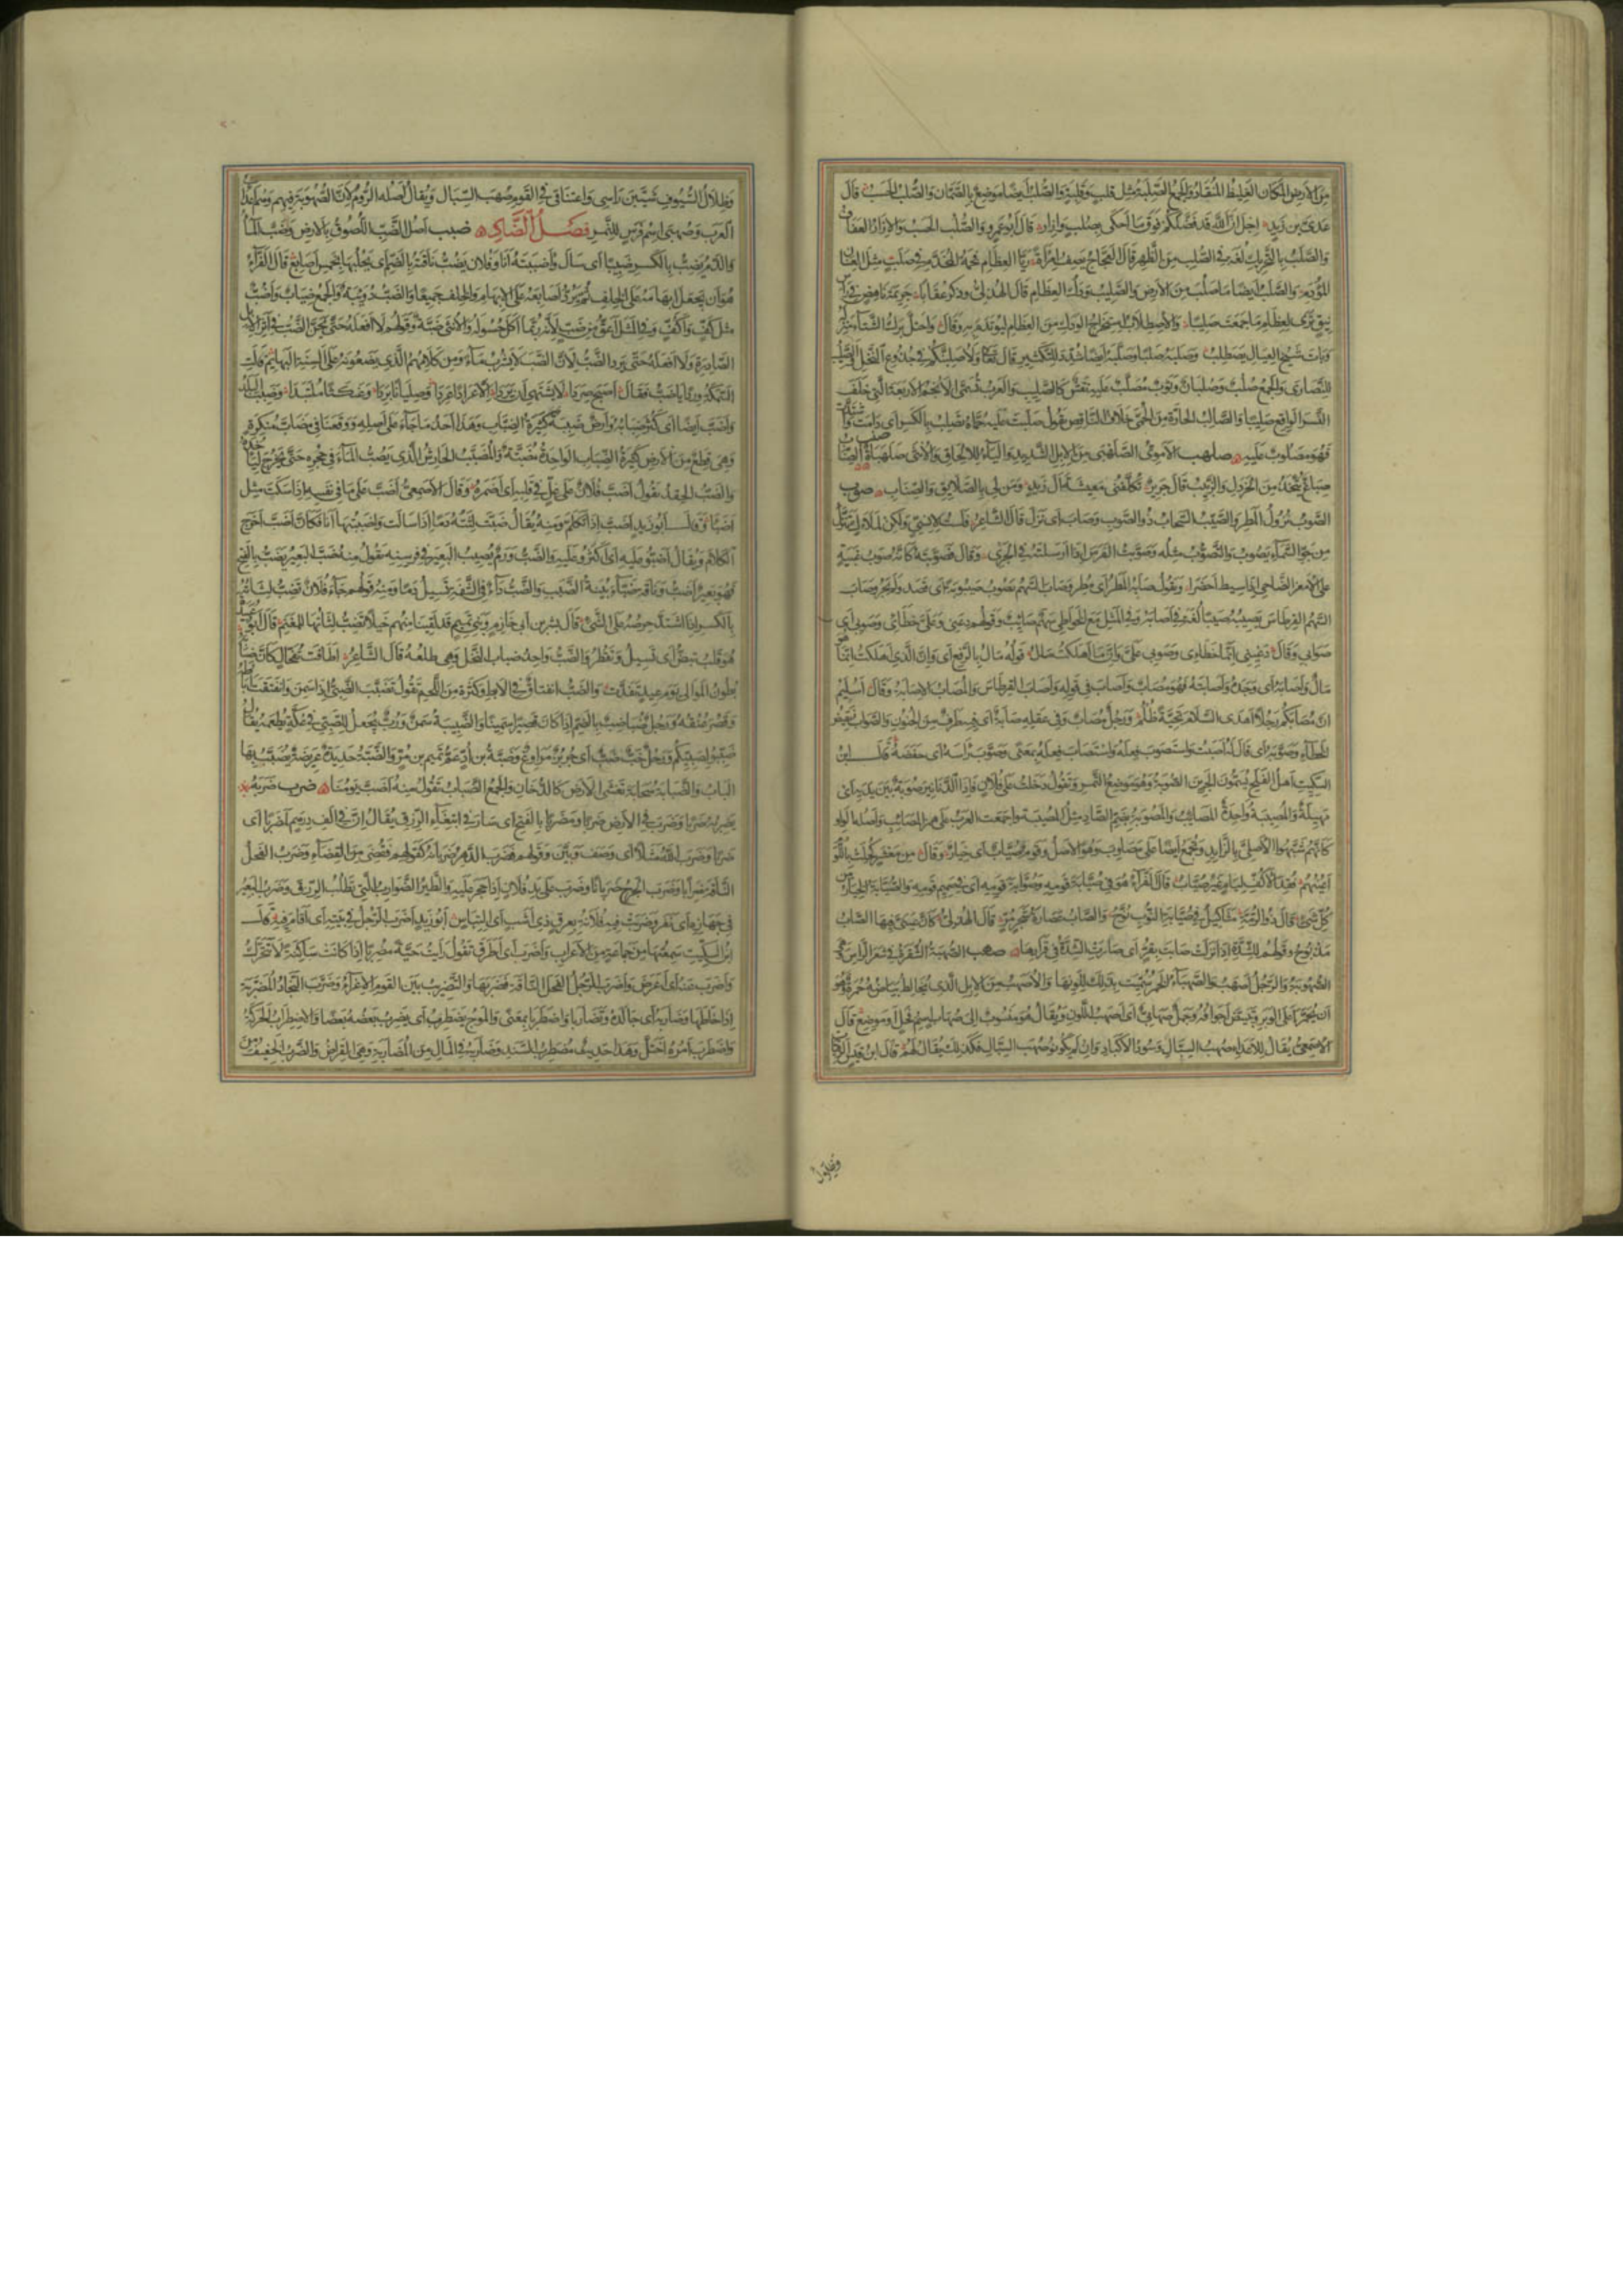 من الارض المكان الغليظ المنقاد والجمع الصلبة مثل قلب وقلبة والصلب ايضا موضع بالصمان والصلب الحسب قال
عدى بن زيد اجل ان الله قد فضلكم فوق ما احكى بصلب وازار قال ابو عمرو الصلب الحسب والازار العفاف
والصلب بالتحريك لغة فى الصلب من الظهر قال العجاج يصف امرأة ريا العظام فخمة المخدم فى صلب مثل العنان
المؤدم والصلب ايضا ما صلب من الارض والصليب ودك العظام قال الهذلى وذكر عقابا جريمة ناهض فى رأس
نيق ترى لعظام ما جمعت صليبا والاصطلاب استخراج الودك من العظام ليؤتدم به وقال واحتل برك الشتاء منزله
وبات شيخ العيال يصطلب وصلبه صلبا وصلبه ايضا شدد للتكثير قال تعالى ولاصلبنكم فى جذوع النخل والصليب
للنصارى والجمع صلب وصلبان وثوب مصلب عليه نقش كالصليب والعرب تسمى الانجم الاربعة التى خلف
النسر الواقع صليبا والصالب الحارة من الحمى خلاف النافض تقول صلبت عليه حماه تصلب بالكسر اى دامت واشتدت
فهو مصلوب عليه صلهب الاموى الصلهبى من الابل الشديد والياء للالحاق والانثى صلهباة صنب الصناب
صباغ يتخذ من الخردل والزبيب قال جرير تكلفنى معيشة آل زيد ومن لى بالصلايق والصناب صوب
الصوب نزول المطر والصيب السحاب ذو الصوب وصاب اى نزل قال الشاعر فلست لانسى ولكن لملاك تنزل
من جو السماء يصوب والتصوب مثله وصوبت الفرس اذا ارسلته فى الجرى وقال فصوبته كانه صوب غبية
على الامعز الضاحى اذا سيط احضرا ويقول صابه المطر اى مطر وصاب السهم يصوب صيبوبة اى قصد ولم يجر وصاب
السهم القرطاس يصيبه صيبا لغة فى اصابه وفى المثل مع الخواطى سهم صائب وقولهم دعنى وعلى خطائى وصوبى اى
صوابى وقال دعينى انما خطاءى وصوبى على وان ما اهلكت مال قوله مال بالرفع اى وان الذى اهلكت انما هو
مال واصابه اى وجده واصابته فهو مصاب واصاب فى قوله واصاب القرطاس والمصاب الاصابة وقال
ان مصابكم رجلا اهدى السلام تحية ظلم ورجل مصاب وفى عقله صابة اى فيه طرف من الجنون والصواب نقيض
الخطاء وصوبه اى قال له اصبت واستصوب فعله واستصاب فعله بمعنى وصوب راسه اى خفضه قال ابن
السكيت اهل الفلج يسمون الجرين الصوبة وهو موضع التمر وتقول دخلت على فلان فاذا الدنانير صوبة بين يديه اى
مهيلة والمصيبة واحدة المصائب والمصوبة بضم الصاد مثل المصيبة واجمعت العرب على همز المصائب واصله الواو
كانهم شبهوا الاصلى بالزايد ويجمع ايضا على مصاوب وهو الاصل وقوم صياب اى خيار وقال من معشر كحلت باللؤم
اعينهم قفد الاكف لئام غير صياب قال الفراء هو فى صيابة قومه وصوابة قومه اى فى صميم قومه والصيابة الخيار من
كل شئ قال ذو الرمة مثاكيل من صيابة النوب نوح والصاب عصارة شجر مر قال الهذلى كان عينى فيها الصاب
مذبوح وقولهم للشدة اذا نزلت صابت بقر اى صارت الشدة فى قرارها صهب الصهبة الشقرة فى شعر الراس وهى
الصهوبة والرجل اصهب والصهباء الخمر سميت بذلك للونها والاصهب من الابل الذى يخالط بياضه حمرة وهو
ان يحمر اعلى الوبر وتبيض اجوافه وجمل صهابى اى اصهب اللون ويقال هو منسوب الى صهاب اسم فحل او موضع قال
الاصمعى يقال للاعداء صهب السبال وسود الاكباد وان لم يكونوا صهب السبال فكذلك يقال لهم قال ابن قيس الرقيات
وظلال
وظلال السيوف شيبن راسى واعتناقى فى القوم صهب السبال ويقال اصله الروم لان الصهوبة فيهم وهم اعداء
العرب وصهبى اسم فرس للنمر فصل الضاد ضبب اصل الضب اللصوق بالارض وضب الماء
والدم يضب بالكسر ضبيبا اى سال واضببته انا وفلان يضب ناقته بالضم اى يحلبها بخمس اصابع قال الفراء
هو ان يجعل ابهامه على الخلف ثم يرد اصابعه على الابهام والخلف جميعا والضب دويبة والجمع ضباب واضب
مثل كف واكف وفى المثل اعق من ضب لانه ربما اكل حسوله والانثى ضبة وقولهم لا افعله حتى يحن الضب فى اثر الابل
الصادرة ولا افعله حتى يرد الضب لان الضب لا يشرب ماء ومن كلامهم الذى يضعونه على السنة البهائم قالت
السمكة وردا يا ضب فقال اصبح قلبى صردا لا يشتهى ان يردا الا عرادا عردا وصليانا بردا وعنكثا ملتبدا وضبب البلد
واضب ايضا اى كثر ضبابه وارض ضببة كثيرة الضباب وهذا احد ما جاء على اصله ووقعنا فى مضاب منكرة
وهى قطع من الارض كثيرة الضباب الواحدة مضبة والمضبب الحارش الذى يصب الماء فى جحره حتى يخرج لياخذه
والضب الحقد تقول اضب فلان على غل فى قلبه اى اضمره وقال الاصمعى اضب على ما فى نفسه اذا سكت مثل
اضبا وقال ابو زيد اضب اذا تكلم ومنه يقال ضبت لثته دما اذا سالت واضببتها انا فكان اضب اخرج
الكلام ويقال اضبوا عليه اى اكثروا عليه والضب ورم يصيب البعير فى فرسنه تقول منه ضب البعير يضب بالفتح
فهو بعير اضب وناقة ضباء بينة الضبب والضب داء فى الشفة تسيل دما ومنه قولهم جاء فلان تضب لثاته
بالكسر اذا اشتد حرصه على الشئ قال بشر بن ابى خازم وبنى تميم قد لقينا منهم خيلا تضب لثاتها للمغنم قال ابو عبيدة
هو قلب تبض اى تسيل وتقطر والضب واحد ضباب النخل وهى طلعه قال الشاعر اطافت بفحال كان ضبابه
بطون الموالى يوم عيد تغدت والضب انفتاق فى الابط وكثرة من اللحم تقول تضبب الصبى اذا سمن وانفتقت اباطه
وقصر عنقه ورجل ضباضب بالضم اذا كان قصيرا سمينا والضبيبة سمن ورب يجعل للصبى فى عكة يطعمه يقال
ضببوا لصبيكم ورجل خب ضب اى جربز مراوغ وضبة بن اد عم تميم بن مر والضبة حديدة عريضة يضبب بها
الباب والضبابة سحابة تغشى الارض كالدخان والجمع الضباب تقول منه اضب يومنا ضرب ضربه
يضربه ضربا وضرب فى الارض ضربا ومضربا بالفتح اى سار فى ابتغاء الرزق يقال ان فى الف درهم لمضربا اى
ضربا وضرب الله مثلا اى وصف وبين وقولهم فضرب الدهر ضربانه كقولهم فقضى من القضاء وضرب الفحل
الناقة ضرابا وضرب الجرح ضربانا وضرب على يد فلان اذا حجر عليه والطير الضوارب التى تطلب الرزق وضرب البعير
فى جهازه اى نفر وضربت فيه فلانة بعرق ذى اشب اى التباس ابو زيد اضرب الرجل فى بيته اى اقام فيه قال
ابن السكيت سمعتها من جماعة من الاعراب واضرب اى اطرق تقول رايت حية مضربا اذا كانت ساكنة لا تتحرك
واضرب عنه اى اعرض واضرب الرجل الفحل الناقة فضربها والتضريب بين القوم الاغراء وضرب النجاد المضربة
اذا خاطها وضاربه اى جالده وتضاربا واضطربا بمعنى والموج يضطرب اى يضرب بعضه بعضا والاضطراب الحركة
واضطرب امره اختل وهذا حديث مضطرب السند وضاربه فى المال من المضاربة وهى القراض والضرب الخفيف من